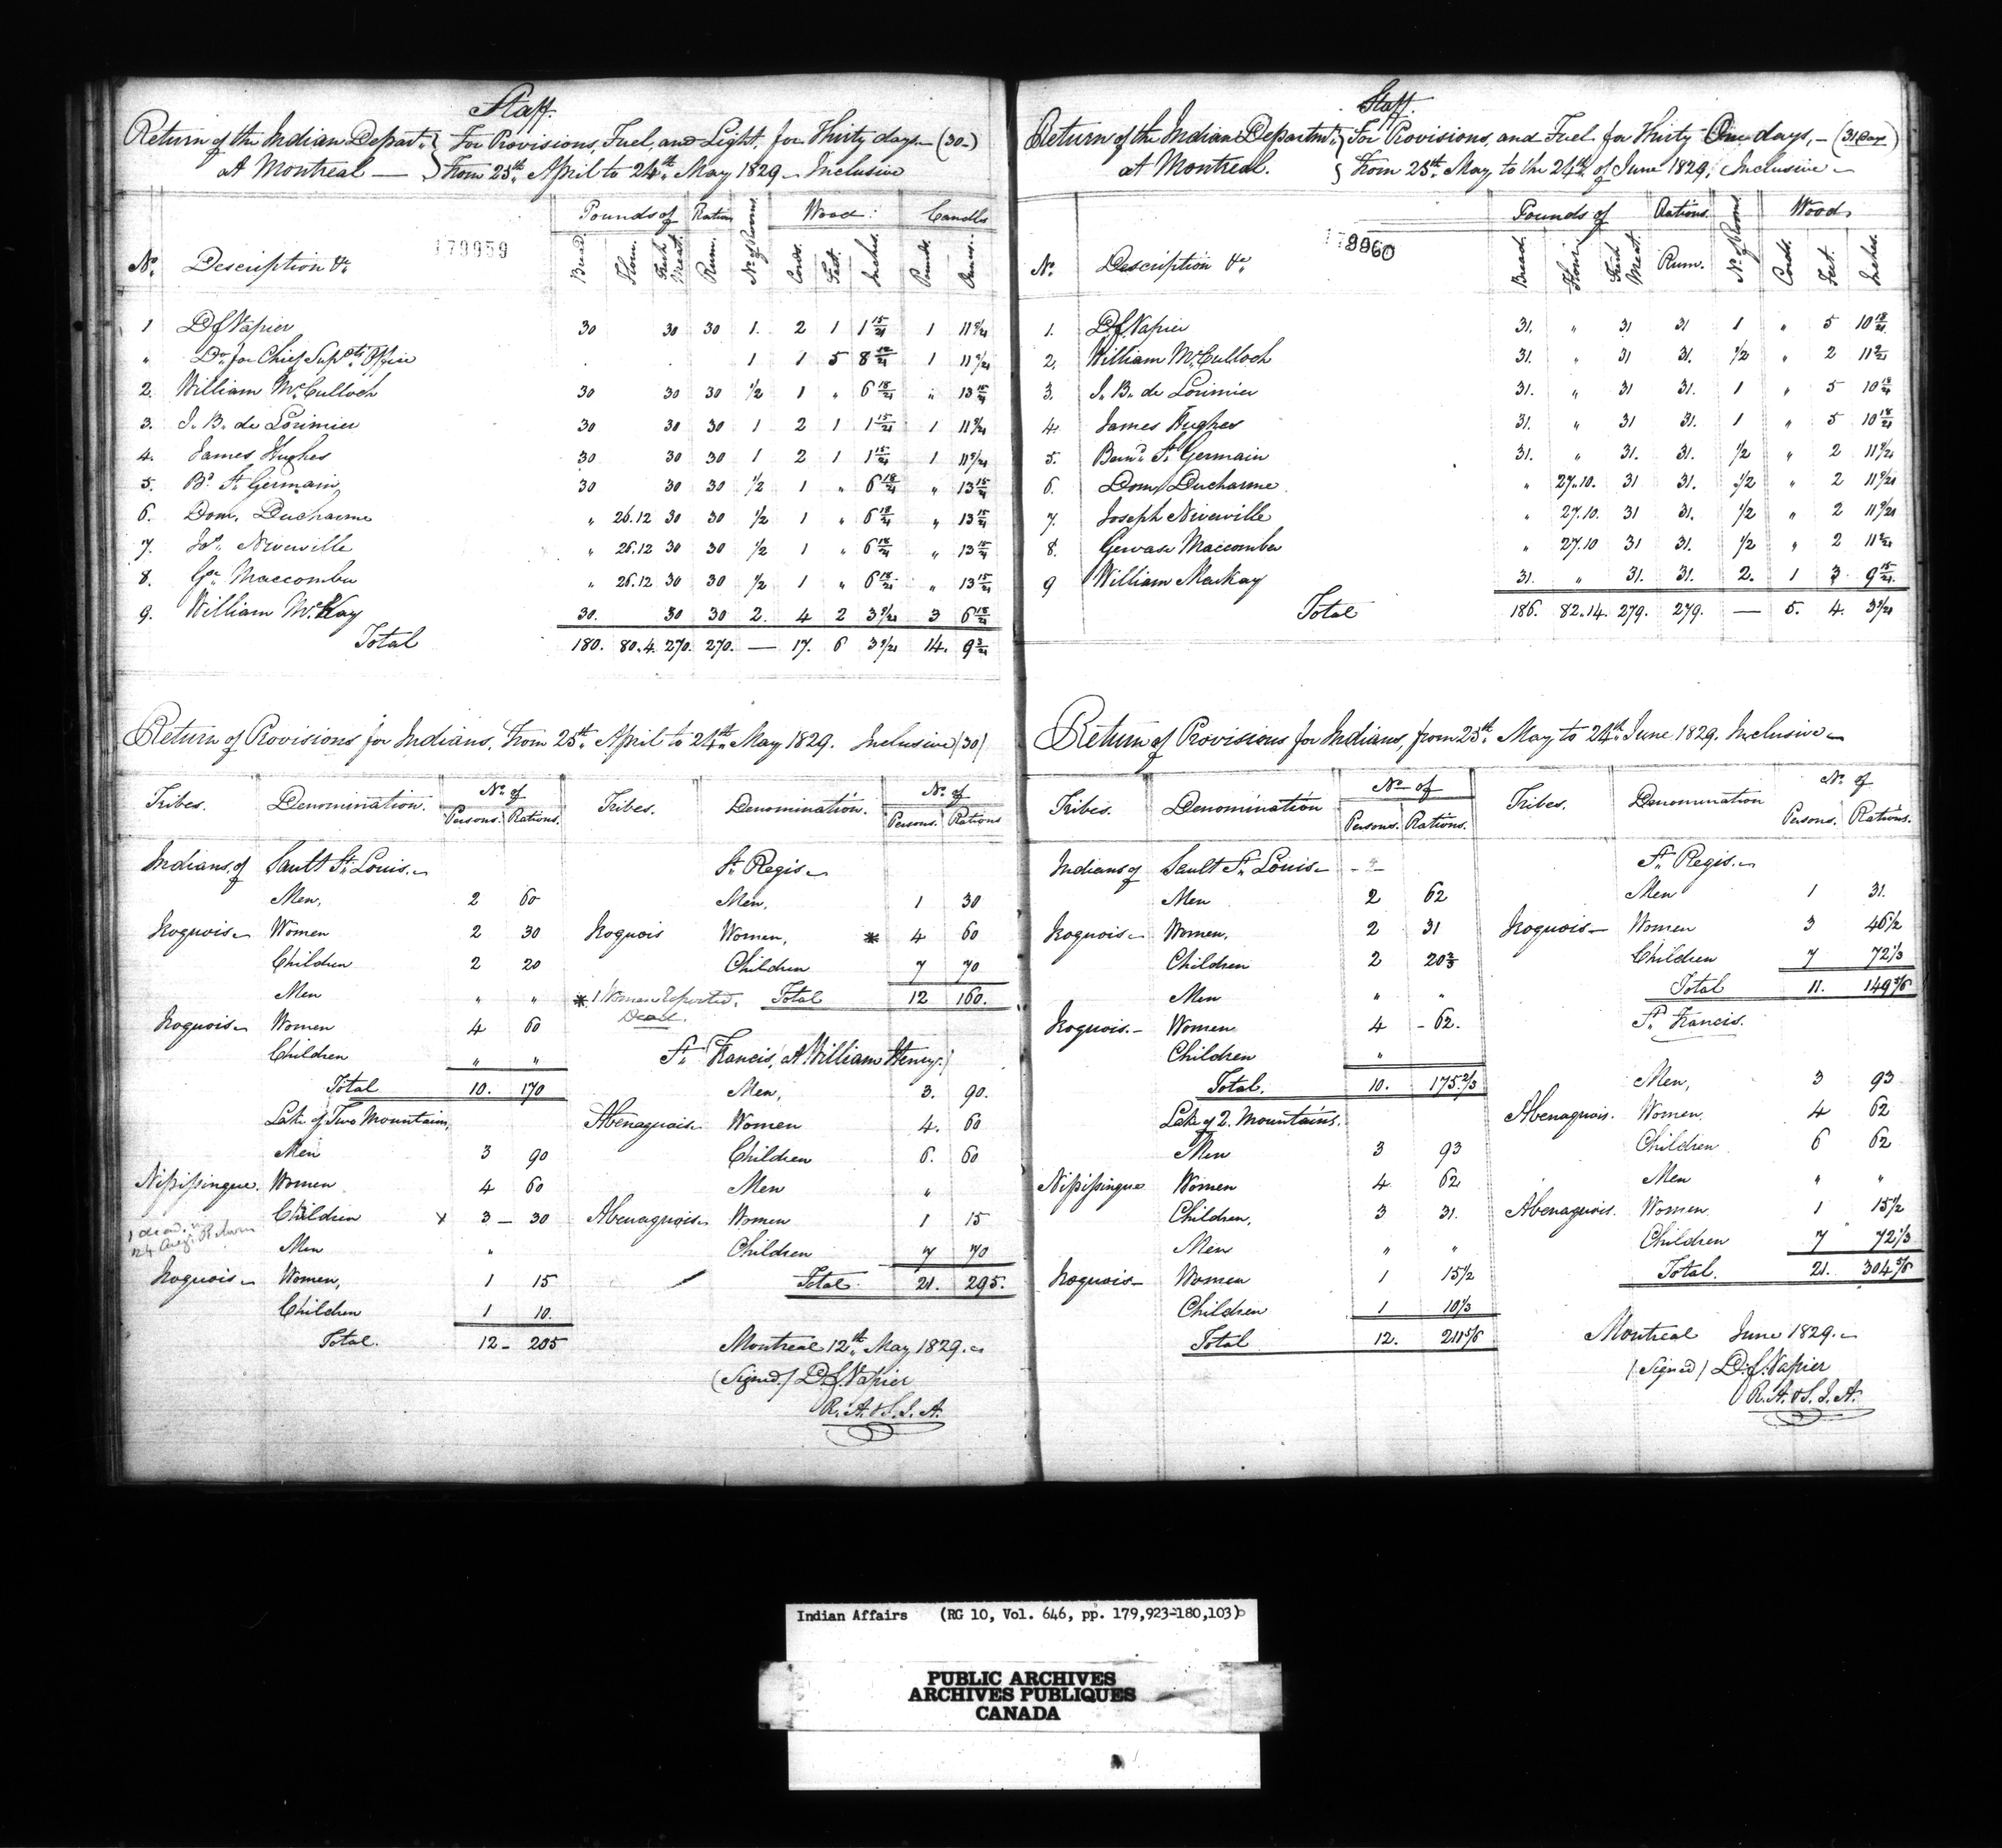 Staff.
Return of the Indian Depart. } For Provisions, Fuel, and Light, for Thirty days — (30)
at Montreal — } From 25th April to 24th May 1829 Inclusive
179959
Pounds of Rations Wood: Candles
No. Description &c. Bread. Flour. Fresh Meat. Rum. No. of Rooms. Cords. Feet. Inches. Pounds. Ounces.
1 D.C. Napier 30 30 30 1. 2 1 1 15/21 1 11 9/21
" Do. for Chief Supdts. Office . . 1 1 5 8 12/21 1 11 9/21
2. William McCulloch 30 30 30 1/2 1 " 6 18/21 " 13 15/21
3. J. B. de Lorimier 30 30 30 1 2 1 1 15/21 1 11 9/21
4. James Hughes 30 30 30 1 2 1 1 15/21 1 11 9/21
5. Bd. St. Germain 30 30 30 1/2 1 " 6 18/21 " 13 15/21
6. Dom. Ducharme " 26.12 30 30 1/2 1 " 6 18/21 " 13 15/21
7. Jos. Niverville " 26.12 30 30 1/2 1 " 6 18/21 " 13 15/21
8. Ge. Maccomber " 26.12 30 30 1/2 1 " 6 18/21 " 13 15/21
9. William McKay 30. 30 30 2. 4 2 3 9/21 3 6 18/21
Total 180. 80.4. 270. 270. — 17. 6 3 9/21 14. 9 3/21
Return of Provisions for Indians, From 25th April to 24th May 1829. Inclusive (30)
Tribes. Denomination. No. of Persons. Rations.
Indians of Sault St. Louis.
Men, 2 60
Iroquois Women 2 30
Children 2 20
Men " "
Iroquois Women 4 60
Children " "
Total 10. 170
Lake of Two Mountains,
Men 3 90
Nipissingue. Women 4 60
Children x 3 — 30
1 dead in
24 Augt. Return
Men "
Iroquois Women, 1 15
Children 1 10.
Total. 12 - 205
Tribes. Denomination. No. of Persons. Rations
St. Regis
Men, 1 30
Iroquois Women, * 4 60
Children 7 70
* 1 Woman reported Dead. Total 12 160.
St. Francis, (At William Henry.)
Men, 3. 90.
Abenaquois Women 4. 60
Children 6. 60
Men "
Abenaquois Women 1 15
Children 7 70
Total 21. 295.
Montreal 12th May 1829.
(Signed) D.C. Napier
R. A. & S. I. A.
Staff.
Return of the Indian Departmt. } For Provisions, and Fuel for Thirty One days, — (31 Day)
at Montreal. } From 25th May to the 24th of June 1829, Inclusive
179960
Pounds of Rations. Wood
No. Description &c. Bread. Flour. Fresh Meat. Rum. No. of Rooms. Cords. Feet. Inches.
1. D.C. Napier 31. " 31 31 1 " 5 10 18/21
2. William McCulloch 31. " 31 31. 1/2 " 2 11 9/21
3. J. B. de Lorimier 31. " 31 31. 1 " 5 10 18/21
4. James Hughes 31. " 31 31. 1 " 5 10 18/21
5. Bernd. St. Germain 31. " 31. 31. 1/2 " 2 11 9/21
6. Dom. Ducharme " 27.10. 31 31. 1/2 " 2 11 9/21
7. Joseph Niverville " 27.10. 31 31. 1/2 " 2 11 9/21
8. Gervase Maccomber " 27.10 31 31. 1/2 " 2 11 9/21
9 William MacKay 31. " 31. 31. 2. 1 3 9 15/21
Total 186. 82.14. 279. 279. — 5. 4. 3 9/21
Return of Provisions for Indians, from 25th May to 24th June 1829. Inclusive
Tribes. Denomination No. of Persons. Rations.
Indians of Sault St. Louis
Men 2 62
Iroquois Women. 2 31
Children 2 20 2/3
Men " "
Iroquois. Women 4 - 62.
Children "
Total. 10. 175 2/3
Lake of 2. Mountains.
Men 3 93
Nipissingue Women 4 62
Children, 3 31.
Men " "
Iroquois Women 1 15 1/2
Children 1 10 1/3
Total 12. 211 5/6
Tribes. Denomination No. of Persons. Rations.
St. Regis.
Men 1 31.
Iroquois Women 3 46 1/2
Children 7 72 1/3
Total 11. 149 5/6
St. Francis.
Men, 3 93
Abenaquois. Women. 4 62
Children 6 62
Men " "
Abenaquois. Women 1 15 1/2
Children 7 72 1/3
Total. 21. 304 5/6
Montreal June 1829.
(Signed) D.C. Napier
R. A. & S. I. A.
Indian Affairs (RG 10, Vol. 646, pp. 179,923-180,103)
PUBLIC ARCHIVES
ARCHIVES PUBLIQUES
CANADA